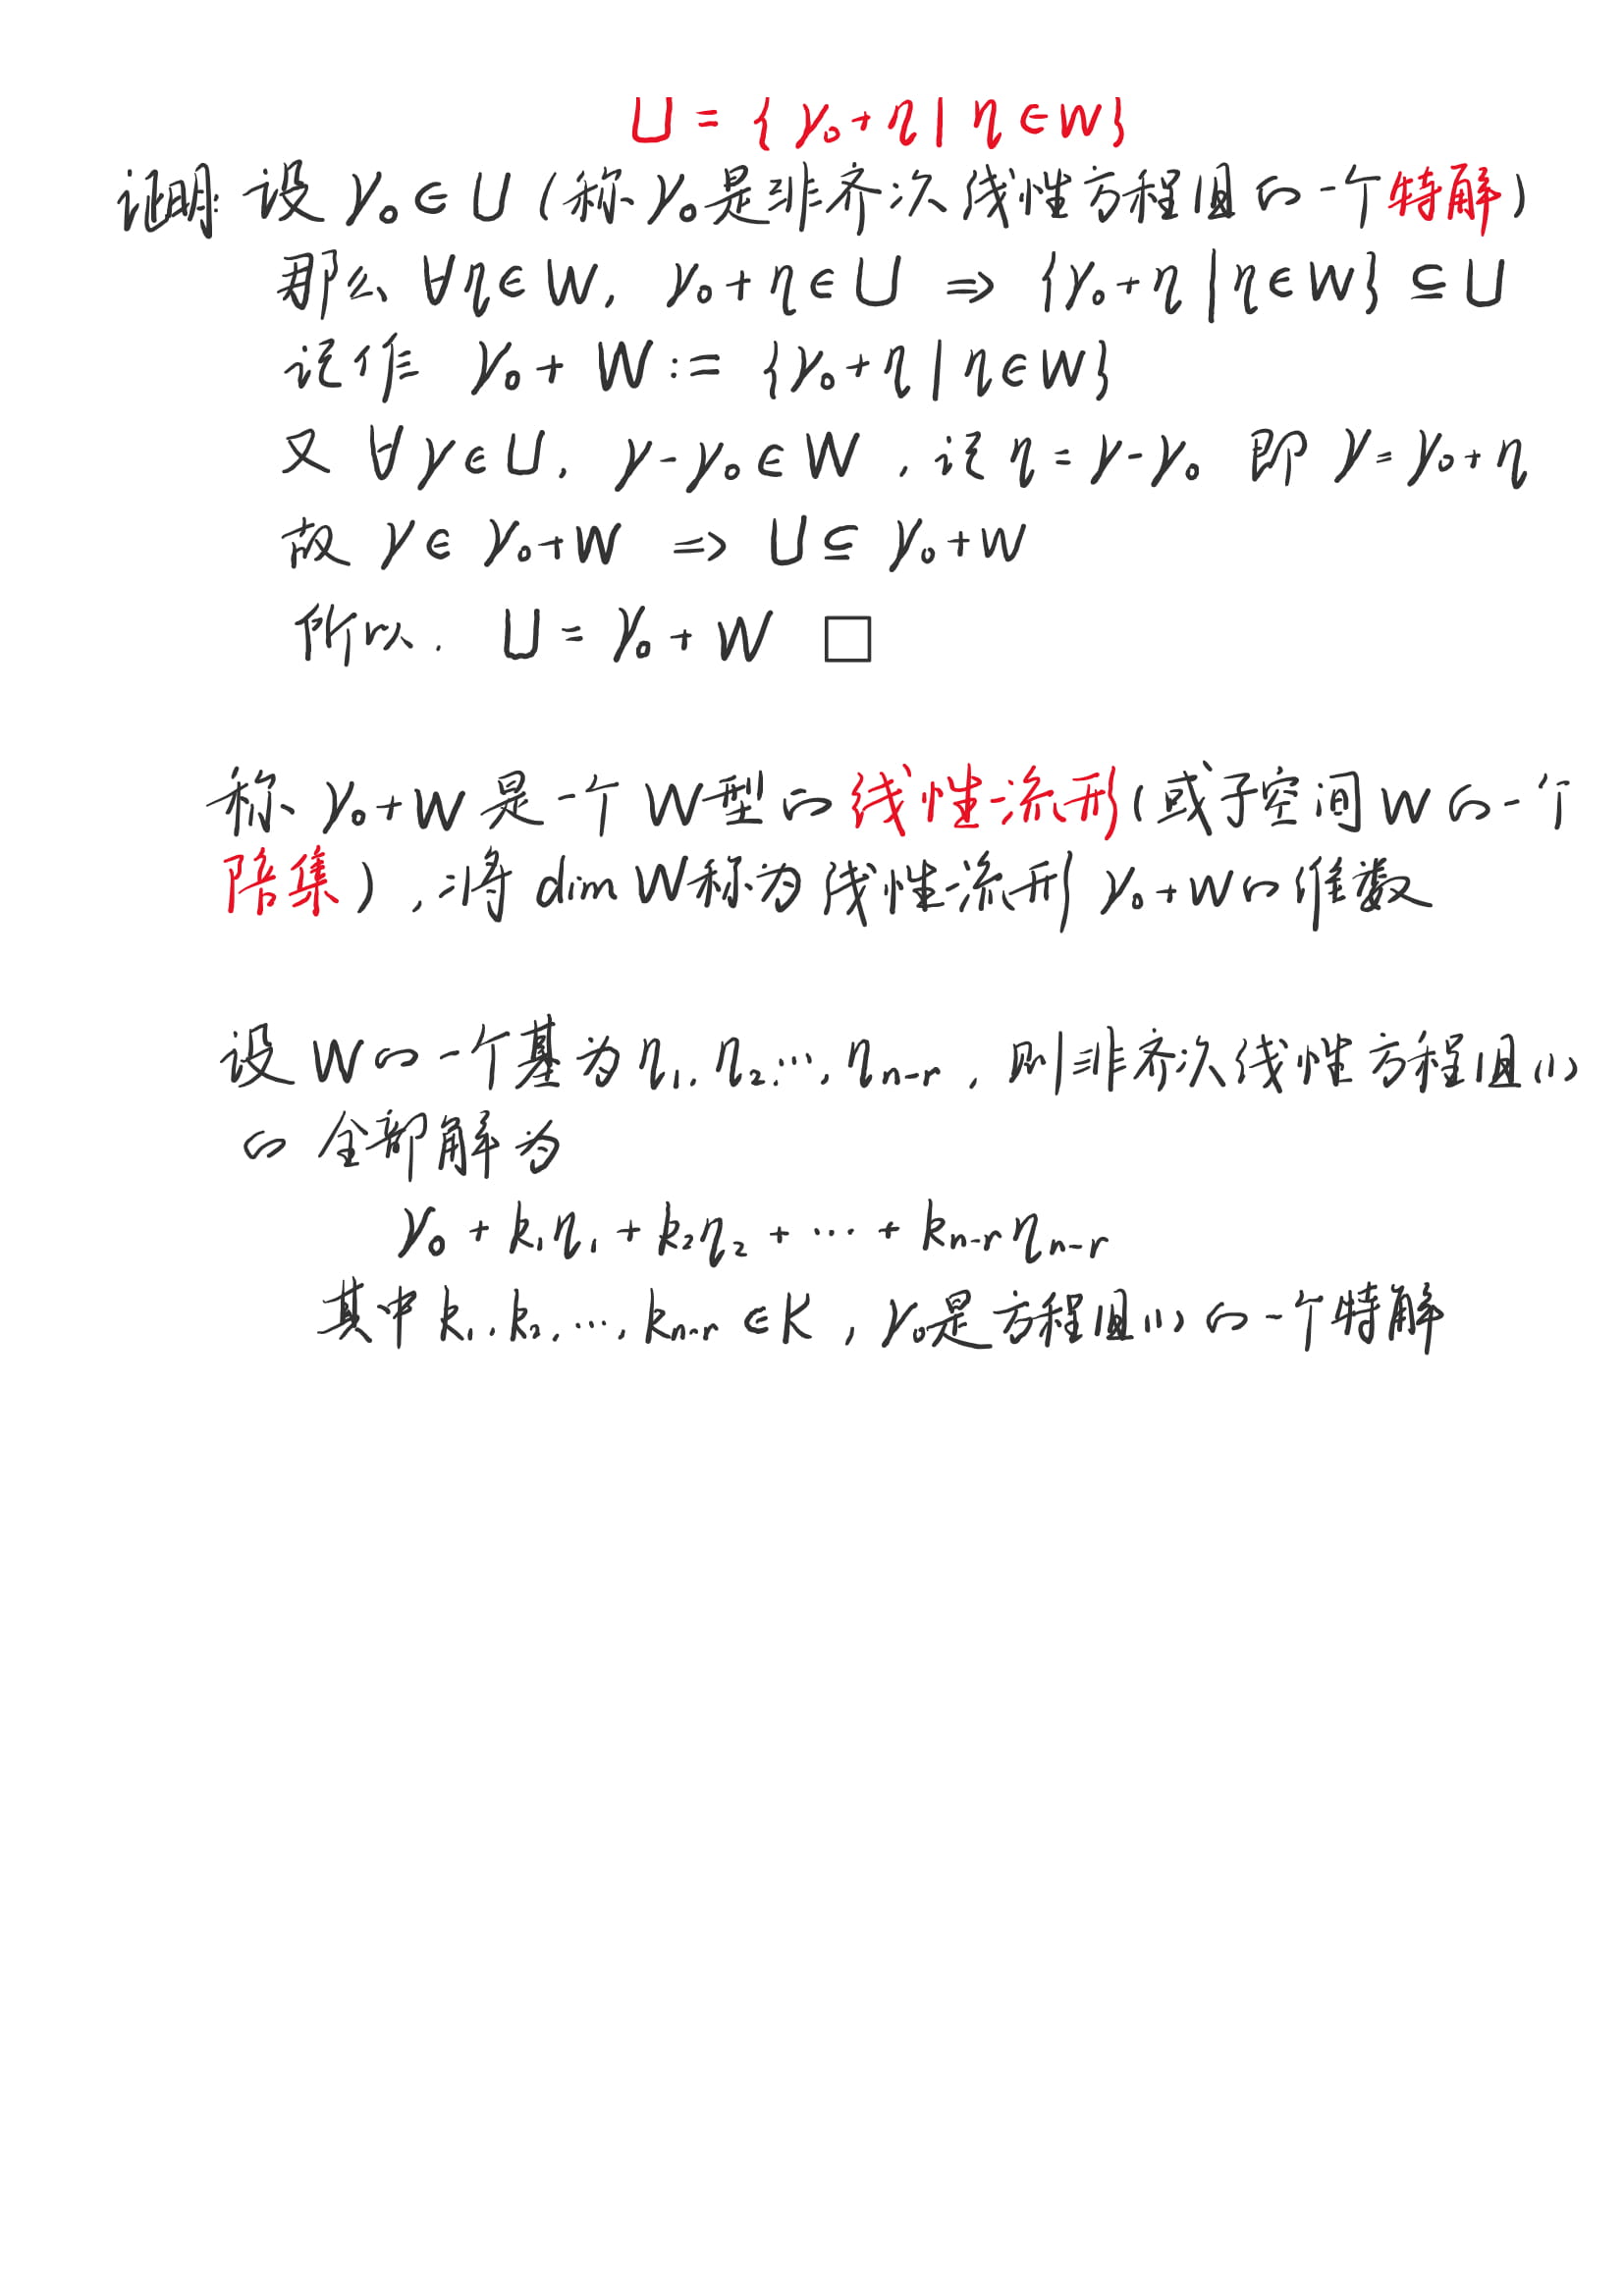 U = { γ₀ + η | η ∈ W }
证明: 设 γ₀ ∈ U (称 γ₀ 是非齐次线性方程组的一个特解)
那么 ∀η ∈ W, γ₀ + η ∈ U ⇒ {γ₀ + η | η ∈ W} ⊆ U
记作 γ₀ + W := {γ₀ + η | η ∈ W}
又 ∀γ ∈ U, γ - γ₀ ∈ W , 记 η = γ - γ₀ 即 γ = γ₀ + η
故 γ ∈ γ₀ + W ⇒ U ⊆ γ₀ + W
所以, U = γ₀ + W □
称 γ₀ + W 是一个 W型的线性流形 (或子空间 W 的一个
陪集) , 将 dim W 称为线性流形 γ₀ + W 的维数
设 W 的一个基为 η₁, η₂, ⋯, ηₙ₋ᵣ , 则非齐次线性方程组(1)
的全部解为
γ₀ + k₁η₁ + k₂η₂ + ⋯ + kₙ₋ᵣηₙ₋ᵣ
其中 k₁, k₂, ⋯, kₙ₋ᵣ ∈ K , γ₀ 是方程组(1)的一个特解